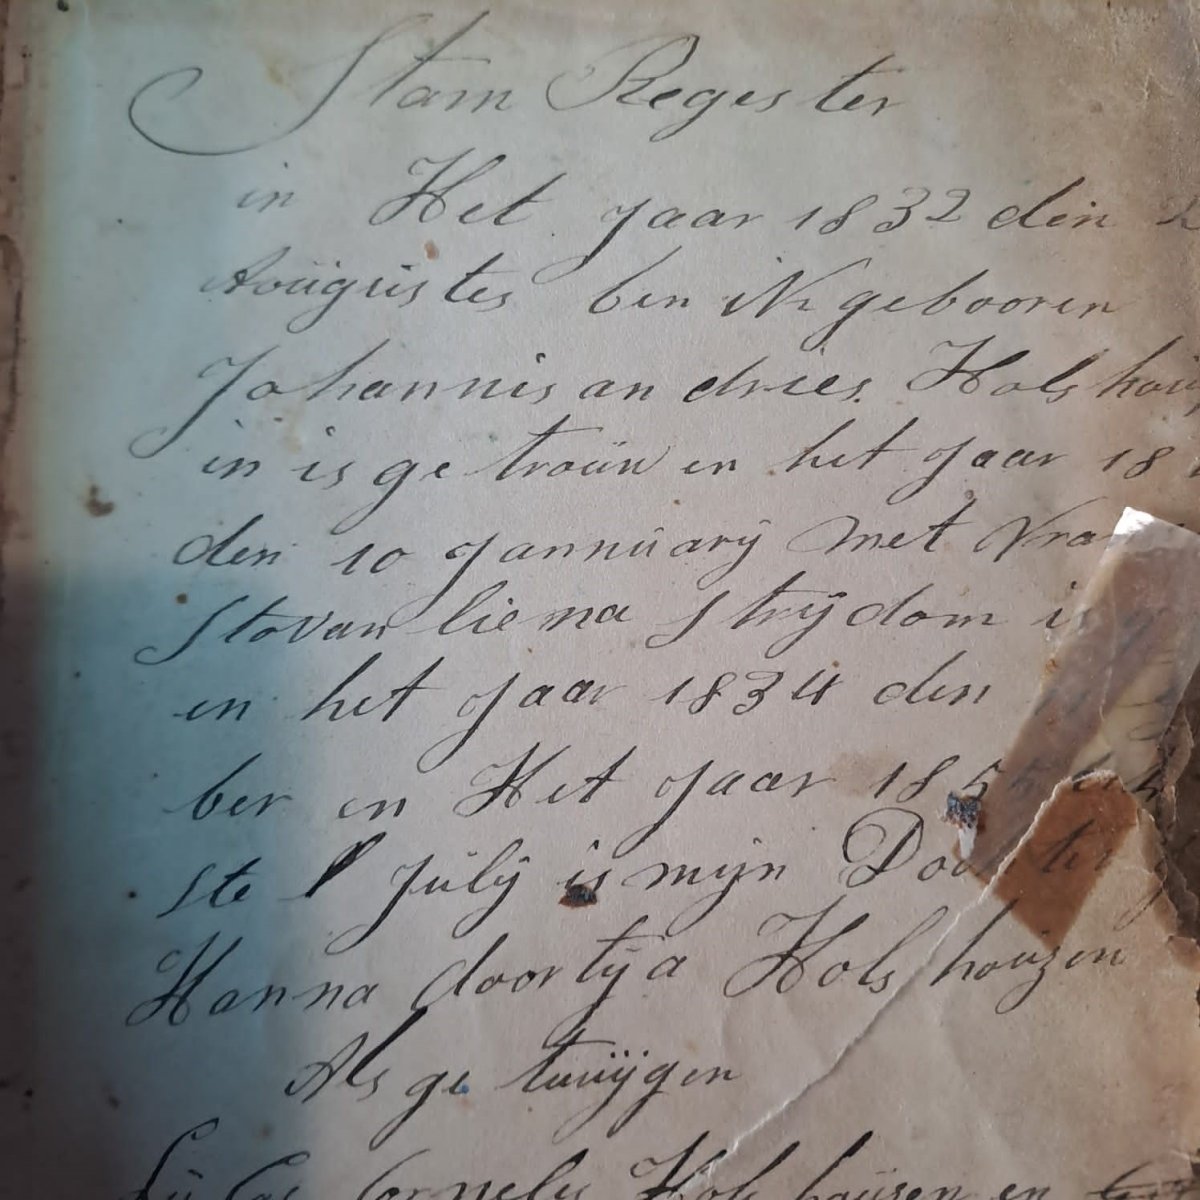 Stam Regester
in Het Jaar 1832 den
Aoügüstes ben ik gebooren
Johannis andries Hols hou
in is ge troüw en het Jaar 18
den 10 Jannüarÿ Met Vra
Stovan liena Strÿdom is
en het Jaar 1834 den
ber en Het Jaar 185
ste Julÿ is mÿn Doch ter
Hanna doortÿa Hols houzen
Als ge tuüÿgen
Lü Cas Cornelis Hols haüsen en